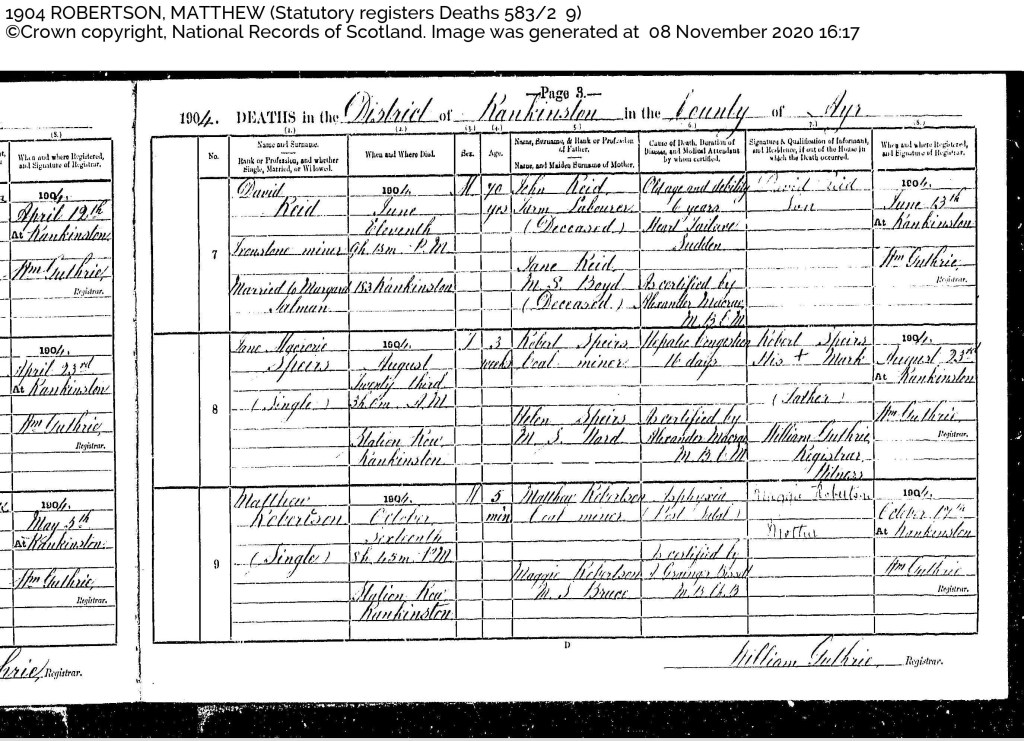 1904 ROBERTSON, MATTHEW (Statutory registers Deaths 583/2 9)
©Crown copyright, National Records of Scotland. Image was generated at 08 November 2020 16:17
—Page 3.—
1904. DEATHS in the District of Rankinston in the County of Ayr
(8.)
When and where Registered, and Signature of Registrar.
1904.
April 19th
At Rankinston
Wm Guthrie,
Registrar.
1904.
April 23rd
At Rankinston
Wm Guthrie,
Registrar.
1904.
May 5th
At Rankinston
Wm Guthrie,
Registrar.
Registrar.
No.
(1.)
Name and Surname.
Rank or Profession, and whether Single, Married, or Widowed.
(2.)
When and Where Died.
(3.)
Sex.
(4.)
Age.
(5.)
Name, Surname, & Rank or Profession of Father.
Name, and Maiden Surname of Mother.
(6.)
Cause of Death, Duration of Disease, and Medical Attendant by whom certified.
(7.)
Signature & Qualification of Informant, and Residence, if out of the House in which the Death occurred.
(8.)
When and where Registered, and Signature of Registrar.
7
David
Reid
Ironstone miner
Married to Margaret
Salman
1904.
June
Eleventh
9h. 15m. P.M.
153 Rankinston
M
70
yrs
John Reid
Farm Labourer
(Deceased)
Jane Reid
M.S. Boyd
(Deceased)
Old age and debility
6 years
Heart Failure
Sudden
As certified by
Alexander Macrae
M.B.C.M
David Reid
Son
1904.
June 13th
At Rankinston
Wm Guthrie,
Registrar.
8
Jane
Speirs
(Single)
1904.
August
Twenty third
3h. 0m. A.M.
Station Row
Rankinston
F
3
weeks
Robert Speirs
Coal miner
Helen Speirs
M.S. Ward
Hepatic Congestion
16 days
As certified by
Alexander Macrae
M.B.C.M
Robert Speirs
His + Mark
(Father)
William Guthrie,
Registrar
Witness
1904.
August 23rd
At Rankinston
Wm Guthrie,
Registrar.
9
Matthew
Robertson
(Single)
1904.
October
Sixteenth
8h. 45m. P.M.
Station Row
Rankinston
M
5
min
Matthew Robertson
Coal miner
Maggie Robertson
M.S. Bruce
Asphyxia
(Post Natal)
As certified by
J Grainger
M.B. Ch.B
Maggie Robertson
Mother
1904.
October 17th
At Rankinston
Wm Guthrie
Registrar.
D
William Guthrie, Registrar.